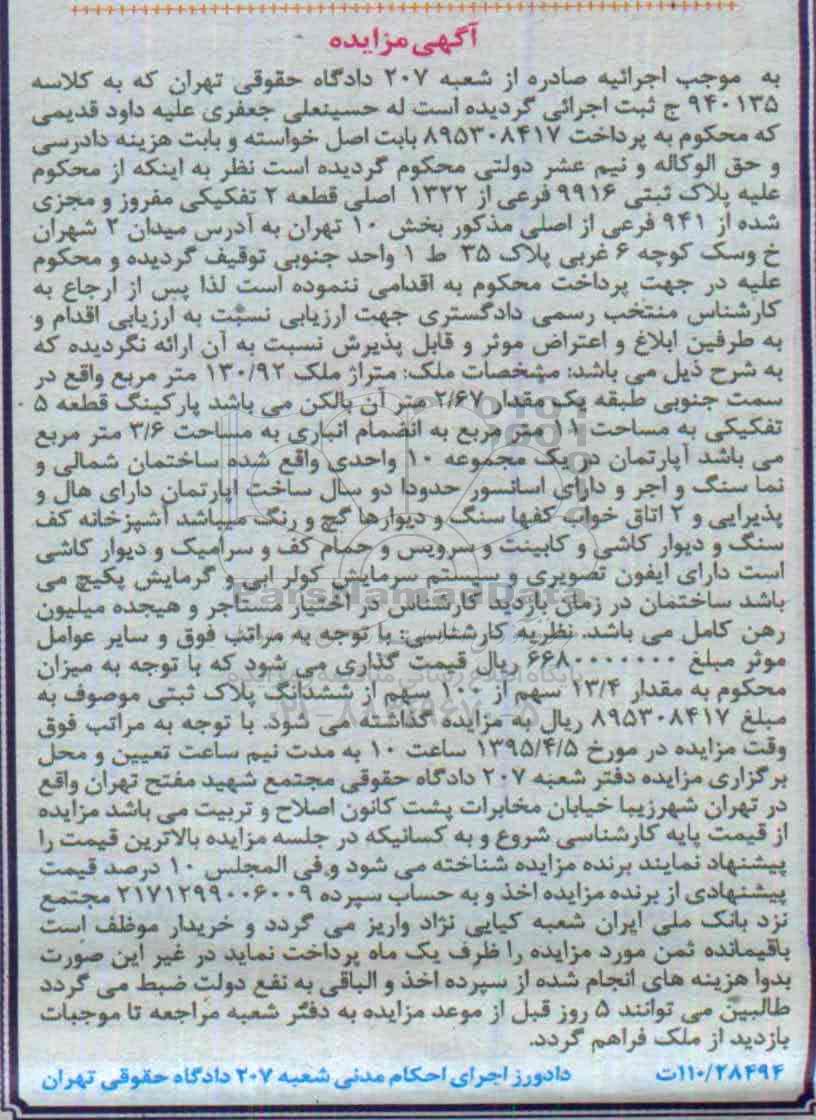 آگهی مزایده
به موجب اجرائیه صادره از شعبه ۲۰۷ دادگاه حقوقی تهران که به کلاسه
۹۴۰۱۳۵ ج ثبت اجرائی گردیده است له حسینعلی جعفری علیه داود قدیمی
که محکوم به پرداخت ۸۹۵۳۰۸۴۱۷ بابت اصل خواسته و بابت هزینه دادرسی
و حق الوکاله و نیم عشر دولتی محکوم گردیده است نظر به اینکه از محکوم
علیه پلاک ثبتی ۹۹۱۶ فرعی از ۱۳۲۲ اصلی قطعه ۲ تفکیکی مفروز و مجزی
شده از ۹۴۱ فرعی از اصلی مذکور بخش ۱۰ تهران به آدرس میدان ۲ شهران
خ وسک کوچه ۶ غربی پلاک ۳۵ ط ۱ واحد جنوبی توقیف گردیده و محکوم
علیه در جهت پرداخت محکوم به اقدامی ننموده است لذا پس از ارجاع به
کارشناس منتخب رسمی دادگستری جهت ارزیابی نسبت به ارزیابی اقدام و
به طرفین ابلاغ و اعتراض موثر و قابل پذیرش نسبت به آن ارائه نگردیده که
به شرح ذیل می باشد: مشخصات ملک: متراژ ملک ۱۳۰/۹۲ متر مربع واقع در
سمت جنوبی طبقه یک مقدار ۲/۶۷ متر آن بالکن می باشد پارکینگ قطعه ۵
تفکیکی به مساحت ۱۱ متر مربع به انضمام انباری به مساحت ۳/۶ متر مربع
می باشد آپارتمان در یک مجموعه ۱۰ واحدی واقع شده ساختمان شمالی و
نما سنگ و اجر و دارای اسانسور حدودا دو سال ساخت اپارتمان دارای هال و
پذیرایی و ۲ اتاق خواب کفها سنگ و دیوارها گچ و رنگ میباشد آشپزخانه کف
سنگ و دیوار کاشی و کابینت و سرویس و حمام کف و سرامیک و دیوار کاشی
است دارای ایفون تصویری و سیستم سرمایش کولر ابی و گرمایش پکیچ می
باشد ساختمان در زمان بازدید کارشناس در اختیار مستاجر و هیجده میلیون
رهن کامل می باشد. نظریه کارشناسی: با توجه به مراتب فوق و سایر عوامل
موثر مبلغ ۶۶۸۰۰۰۰۰۰۰ ریال قیمت گذاری می شود که با توجه به میزان
محکوم به مقدار ۱۳/۴ سهم از ۱۰۰ سهم از ششدانگ پلاک ثبتی موصوف به
مبلغ ۸۹۵۳۰۸۴۱۷ ریال به مزایده گذاشته می شود. با توجه به مراتب فوق
وقت مزایده در مورخ ۱۳۹۵/۴/۵ ساعت ۱۰ به مدت نیم ساعت تعیین و محل
برگزاری مزایده دفتر شعبه ۲۰۷ دادگاه حقوقی مجتمع شهید مفتح تهران واقع
در تهران شهرزیبا خیابان مخابرات پشت کانون اصلاح و تربیت می باشد مزایده
از قیمت پایه کارشناسی شروع و به کسانیکه در جلسه مزایده بالاترین قیمت را
پیشنهاد نمایند برنده مزایده شناخته می شود و فی المجلس ۱۰ درصد قیمت
پیشنهادی از برنده مزایده اخذ و به حساب سپرده ۲۱۷۱۲۹۹۰۰۶۰۰۹ مجتمع
نزد بانک ملی ایران شعبه کیایی نژاد واریز می گردد و خریدار موظف است
باقیمانده ثمن مورد مزایده را ظرف یک ماه پرداخت نماید در غیر این صورت
بدوا هزینه های انجام شده از سپرده اخذ و الباقی به نفع دولت ضبط می گردد
طالبین می توانند ۵ روز قبل از موعد مزایده به دفتر شعبه مراجعه تا موجبات
بازدید از ملک فراهم گردد.
۱۱۰/۲۸۴۹۴ت دادورز اجرای احکام مدنی شعبه ۲۰۷ دادگاه حقوقی تهران
ParsNamadData